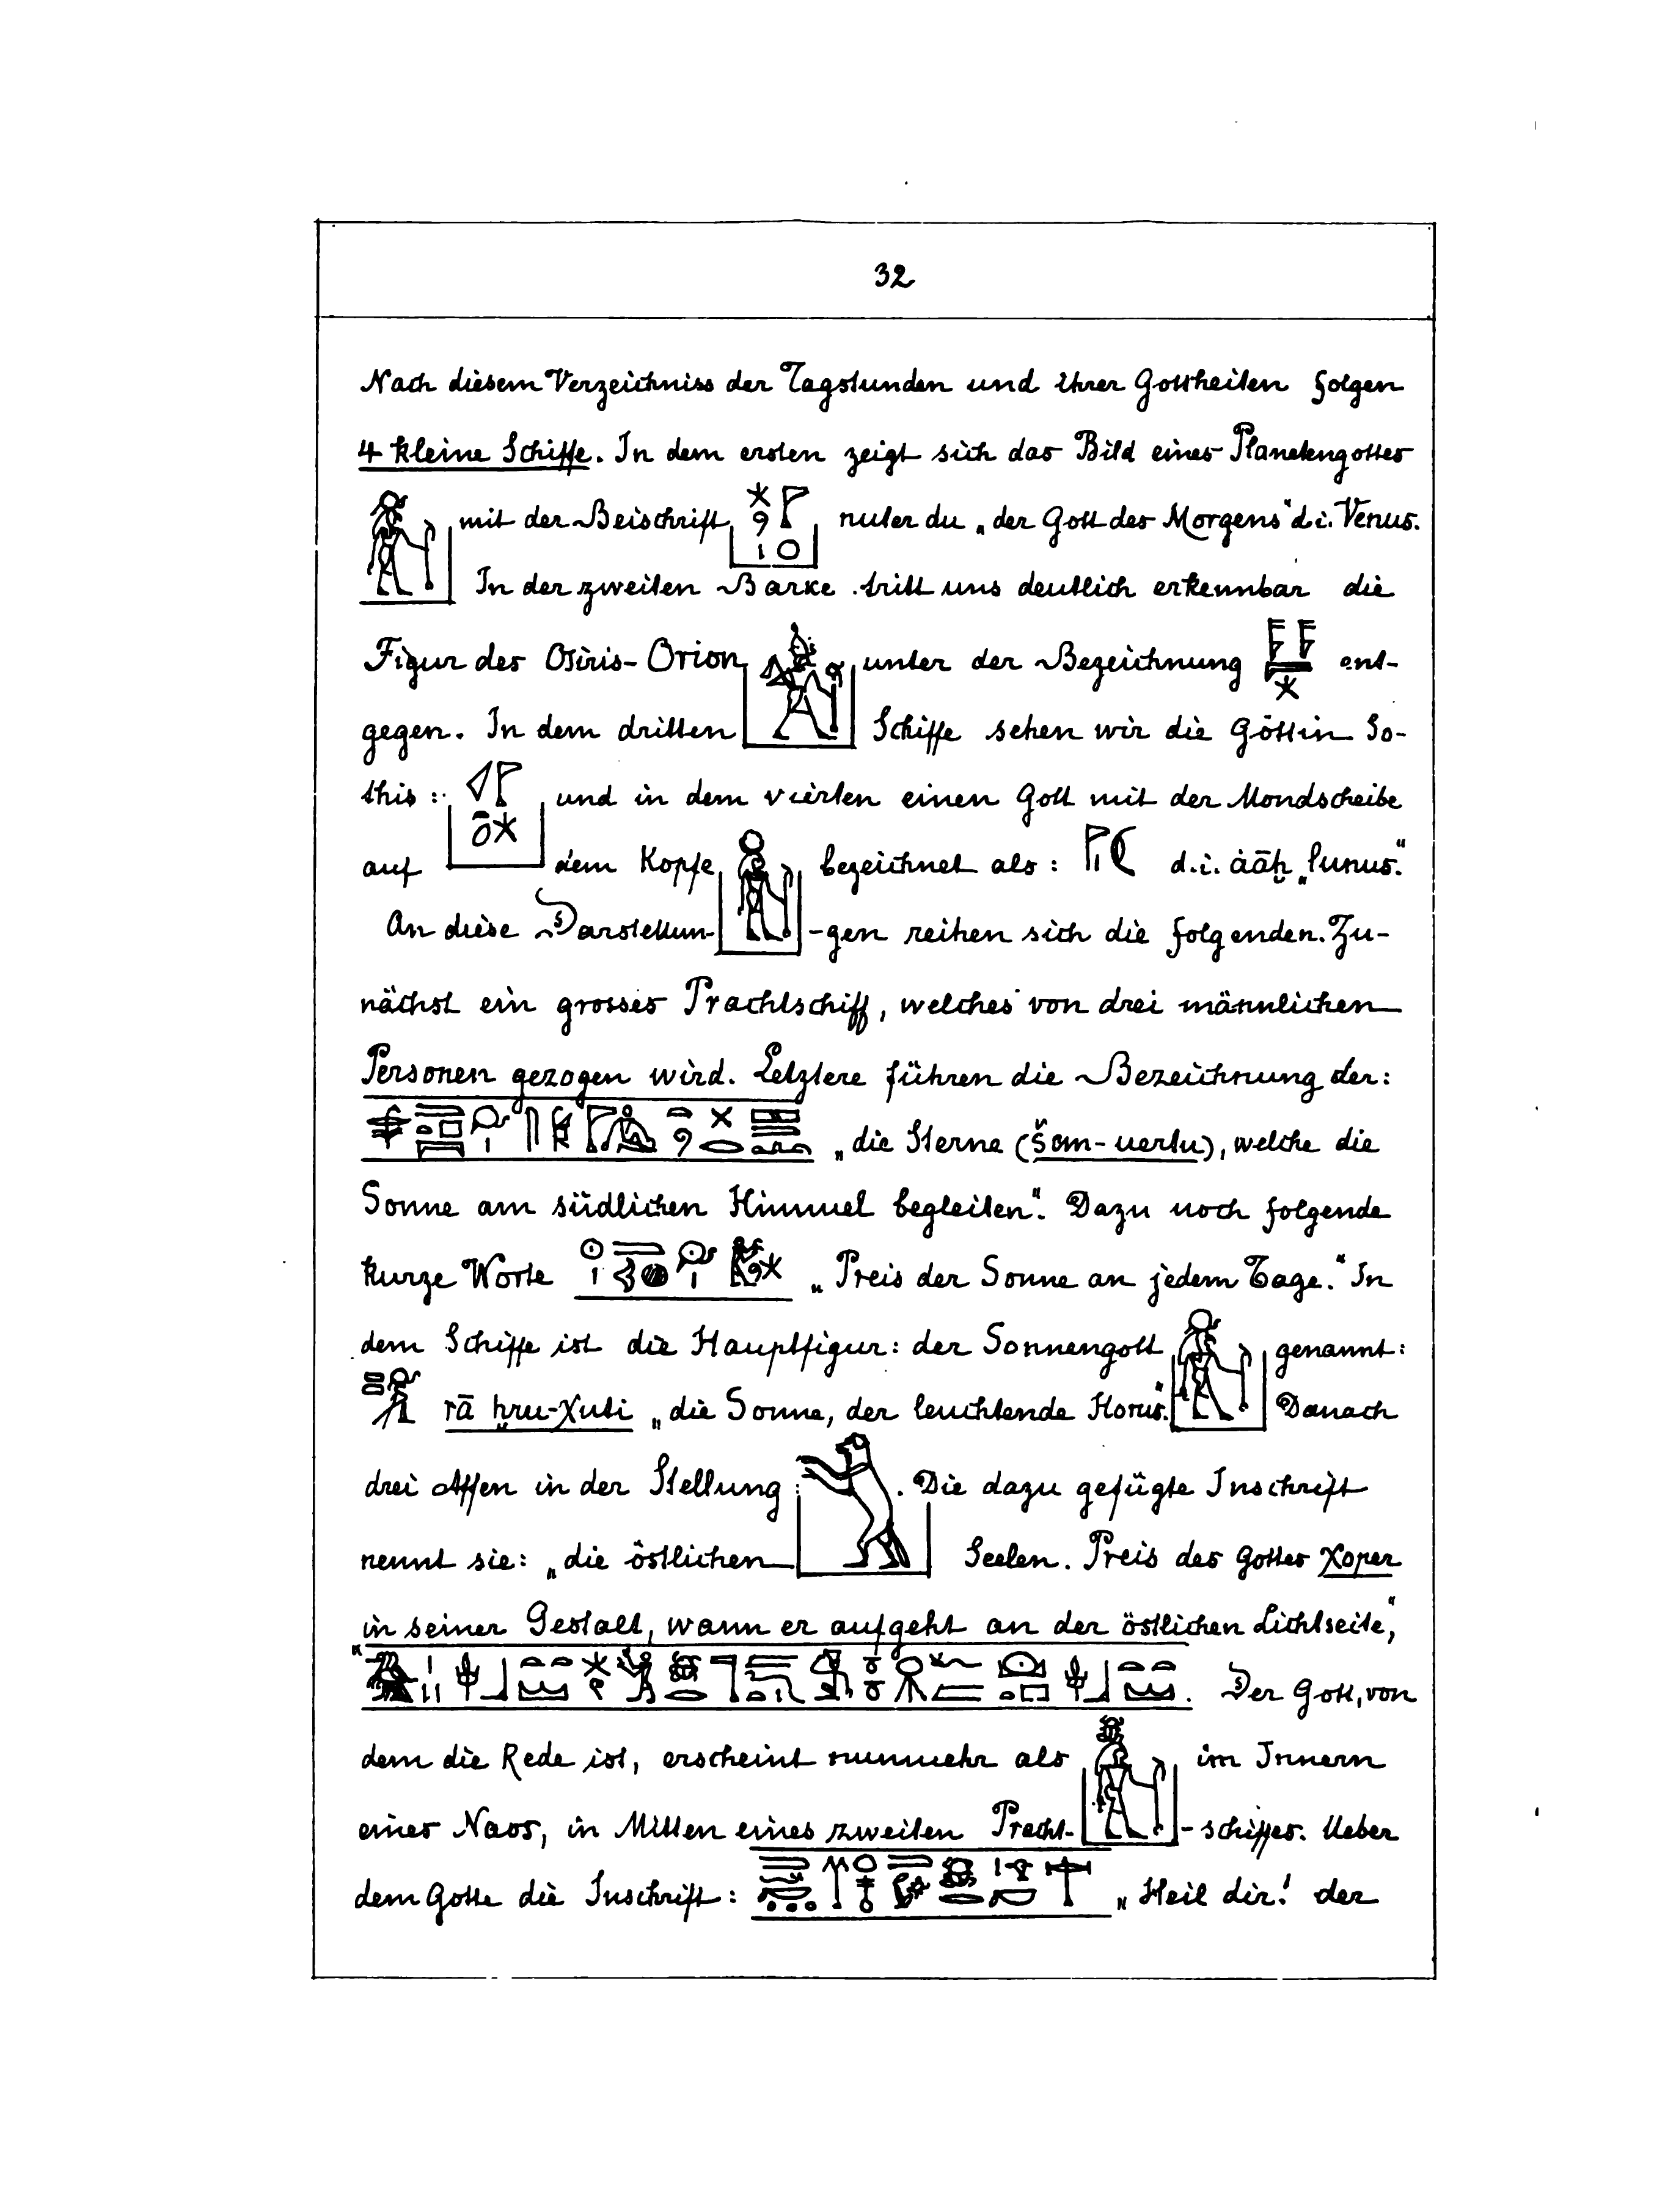 32
Nach diesem Verzeichniss der Tagstunden und ihrer Gottheiten folgen
4 kleine Schiffe. In dem ersten zeigt sich das Bild eines Planetengottes
mit der Beischrift nuter du „der Gott des Morgens" d.i. Venus.
In der zweiten Barke tritt uns deutlich erkennbar die
Figur des Osiris-Orion unter der Bezeichnung ent-
gegen. In dem dritten Schiffe sehen wir die Göttin So-
this: und in dem vierten einen Gott mit der Mondscheibe
auf dem Kopfe bezeichnet als: d.i. ȧāḥ „lunus."
An diese Darstellun- -gen reihen sich die folgenden. Zu-
nächst ein grosses Prachtschiff, welches von drei männlichen
Personen gezogen wird. Letztere führen die Bezeichnung der:
„die Sterne (šem-uertu), welche die
Sonne am südlichen Himmel begleiten". Dazu noch folgende
kurze Worte „Preis der Sonne an jedem Tage." In
dem Schiffe ist die Hauptfigur: der Sonnengott genannt:
rā ḥru-χuti „die Sonne, der leuchtende Horus". Danach
drei Affen in der Stellung: . Die dazu gefügte Inschrift
nennt sie: „die östlichen Seelen. Preis des Gottes χoper
in seiner Gestalt, wann er aufgeht an der östlichen Lichtseite",
Der Gott, von
dem die Rede ist, erscheint nunmehr als im Innern
eines Naos, in Mitten eines zweiten Pracht- -schiffes. Ueber
dem Gotte die Inschrift: „Heil dir! der